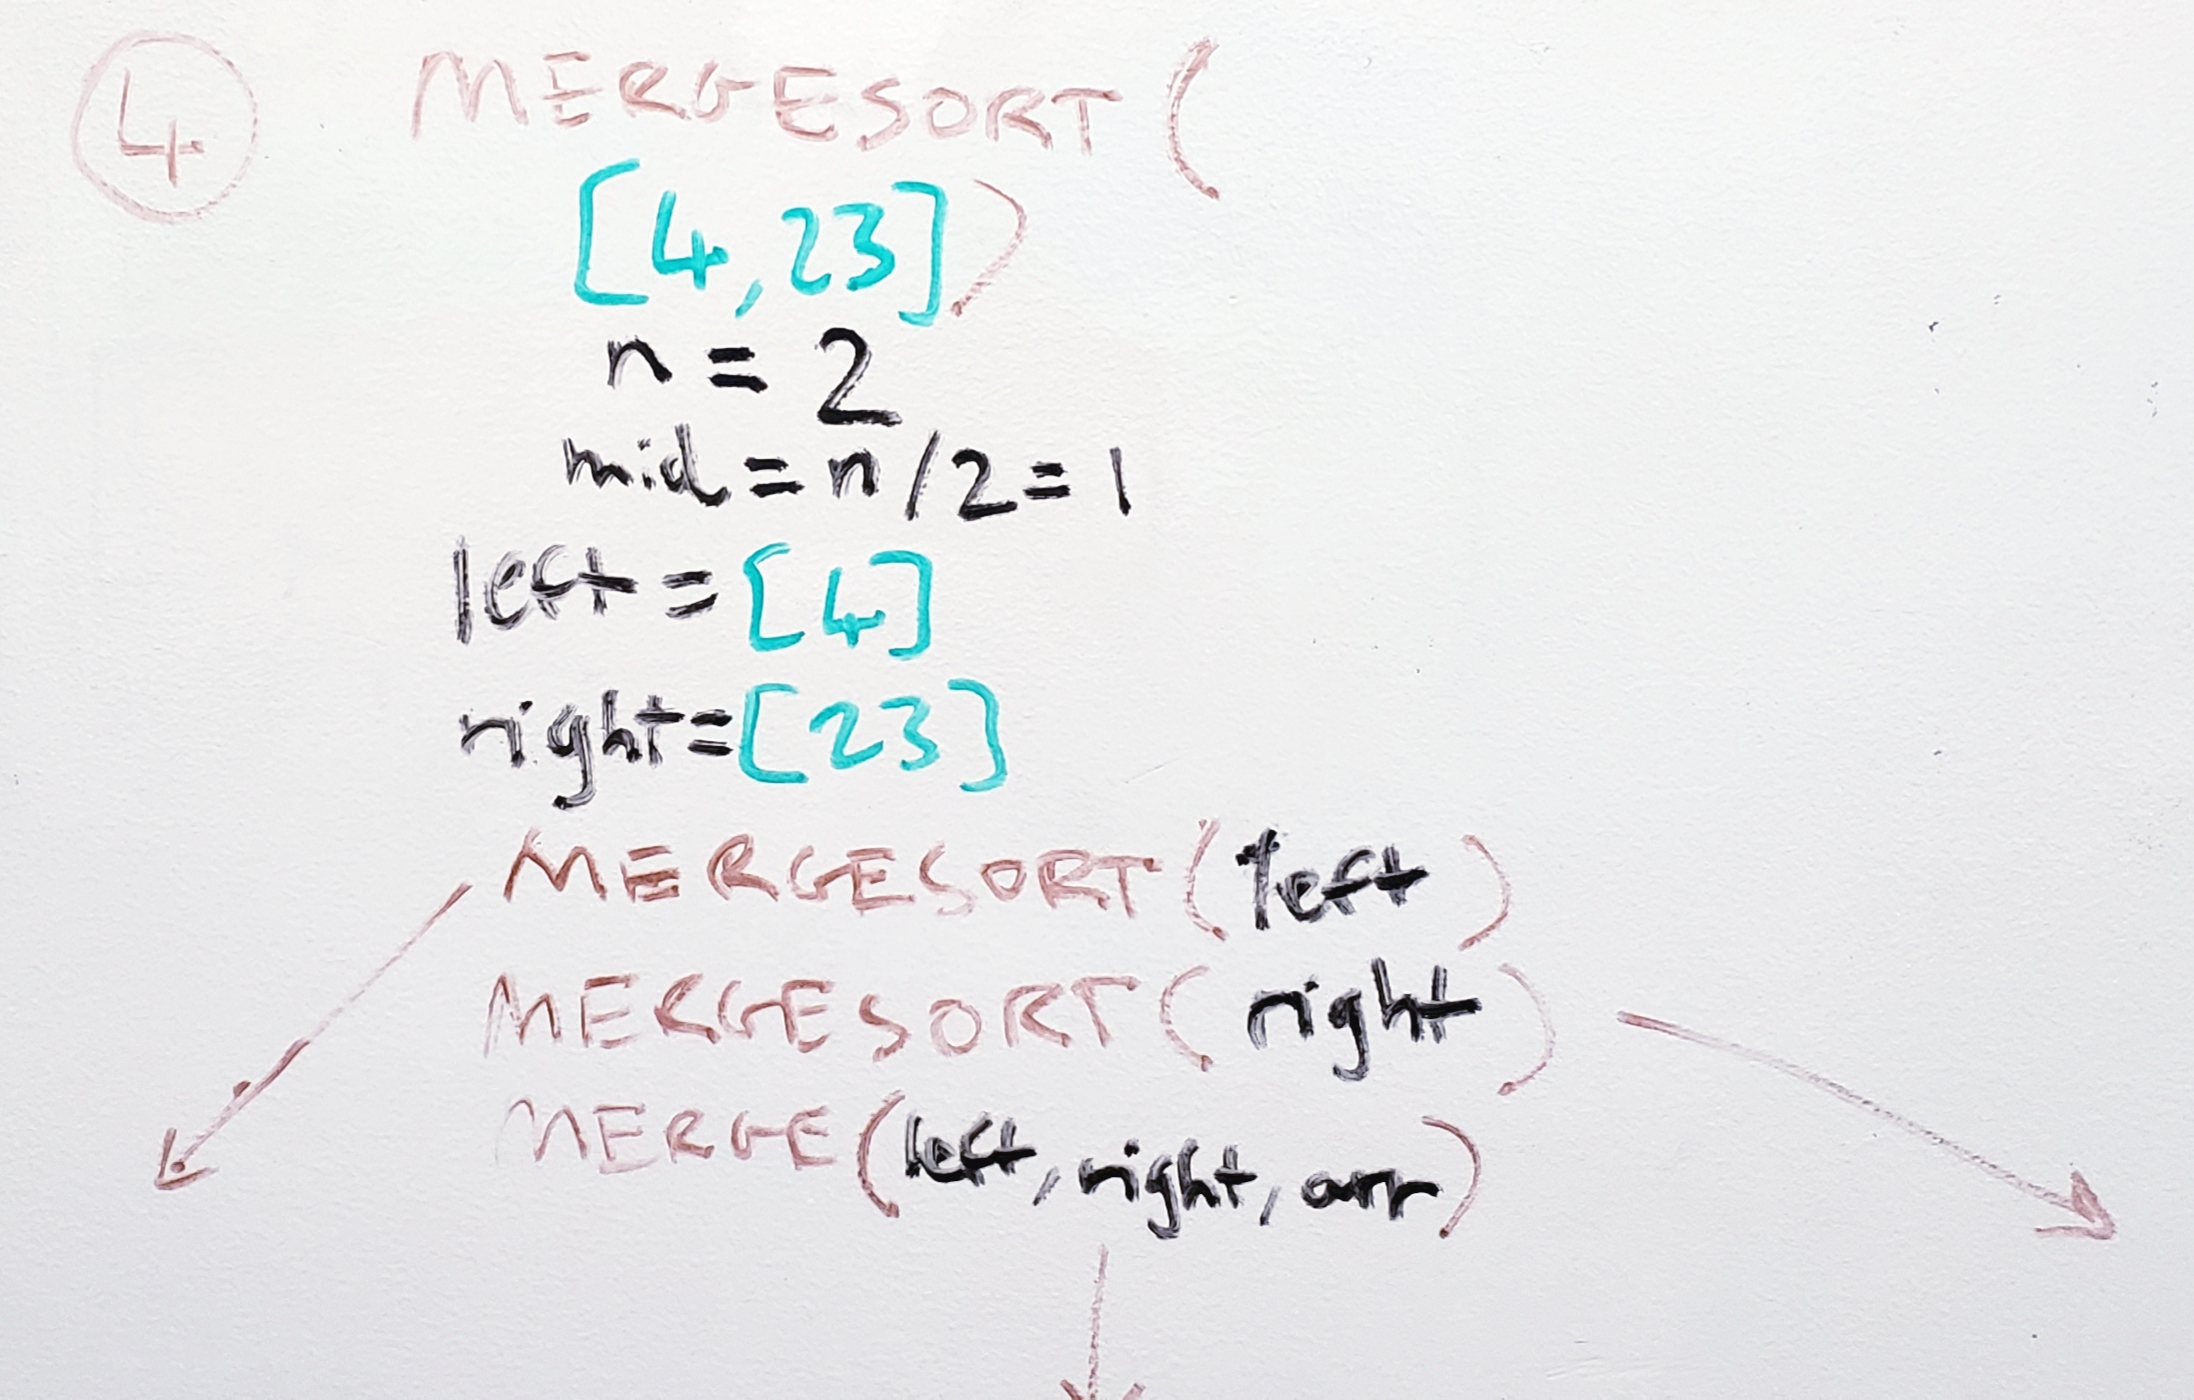 4 MERGESORT(
[4,23])
n = 2
mid = n/2 = 1
left = [4]
right = [23]
MERGESORT(left)
MERGESORT(right)
MERGE(left, right, arr)